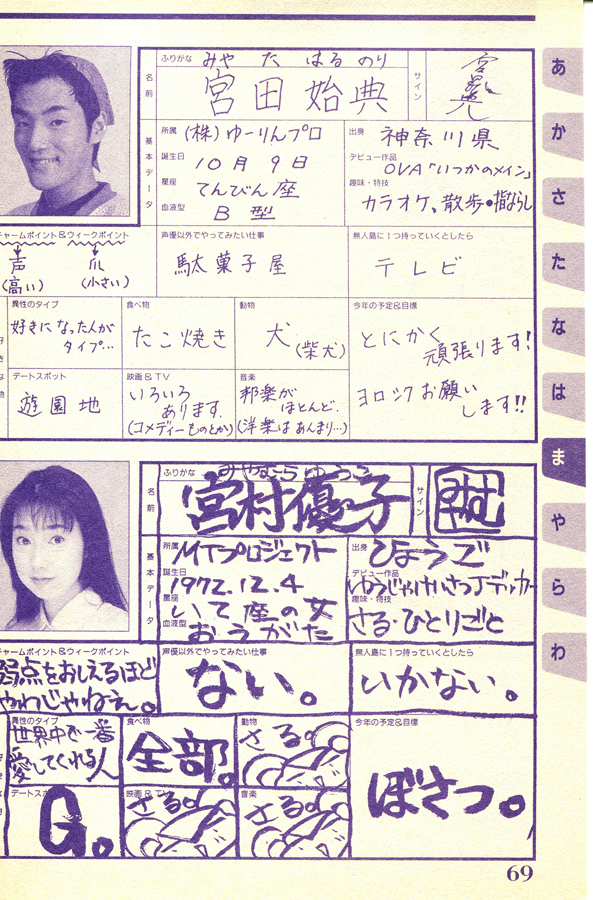 ふりがな みや た はる のり
名前 宮田 始典
サイン
基本データ
所属 (株)ゆーりんプロ
出身 神奈川県
誕生日 10月9日
デビュー作品 OVA「いつかのメイン」
星座 てんびん座
趣味・特技 カラオケ、散歩・指ならし
血液型 B型
チャームポイント&ウィークポイント
声 爪
(高い) (小さい)
声優以外でやってみたい仕事
駄菓子屋
無人島に1つ持っていくとしたら
テレビ
異性のタイプ
好きになった人が
タイプ…
食べ物
たこ焼き
動物
犬
(柴犬)
今年の予定&目標
とにかく
頑張ります!
ヨロシクお願い
します!!
デートスポット
遊園地
映画&TV
いろいろ
あります.
(コメディーものとか)
音楽
邦楽が
ほとんど.
(洋楽はあんまり…)
ふりがな みやむらゆうこ
名前 宮村優子
サイン
基本データ
所属 MTプロジェクト
出身 ひょうご
誕生日 1972.12.4
デビュー作品 ゆうじゃけいさつJデッカー
星座 いて座の女
趣味・特技 さる・ひとりごと
血液型 おうがた
チャームポイント&ウィークポイント
弱点をおしえるほど
やわじゃねえ。
声優以外でやってみたい仕事
ない。
無人島に1つ持っていくとしたら
いかない。
異性のタイプ
世界中で一番
愛してくれる人
食べ物
全部。
動物
さる。
今年の予定&目標
ぼさつ。
デートスポット
G。
映画&TV
さる。
音楽
さる。
あ
か
さ
た
な
は
ま
や
ら
わ
69